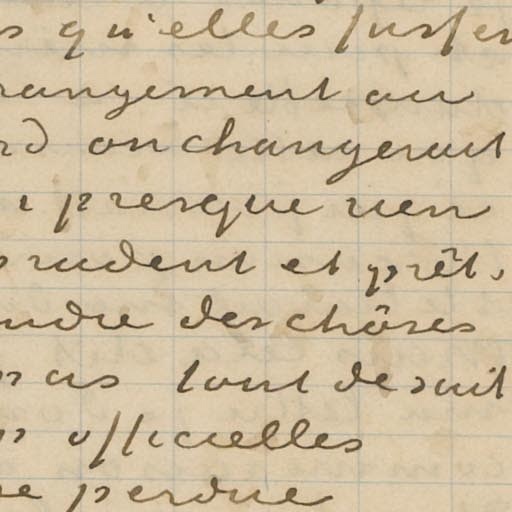 s qu'elles fussen
rangement au
rd on changerait
i presque rien
prudent et prêt.
ndre des chôses
pas tout de suit
p officielles
re perdue